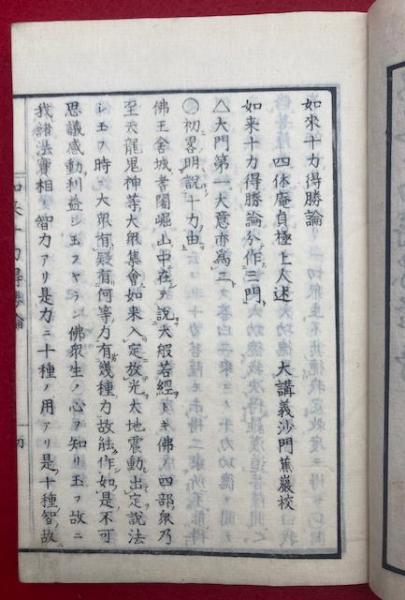 如來十力得勝論
四休庵貞極上人述　大講義沙門蕉巖校
如来十力得勝論分作三門
△大門第一大意亦爲二
○初畧明説十力由
佛王舍城耆闍崛山中在テ説大般若經トキ佛四部衆乃
至天龍鬼神等大衆集會如来入定放光大地震動出定説法
シ玉フ時大衆有疑有何等力有幾種力故能作如是不可
思議感動利益シ玉フヤラン佛衆生ノ心ヲ知リ玉フ故ニ
我諸法實相智力アリ是力ニ十種ノ用アリ是十種智故
如来十力得勝論
初